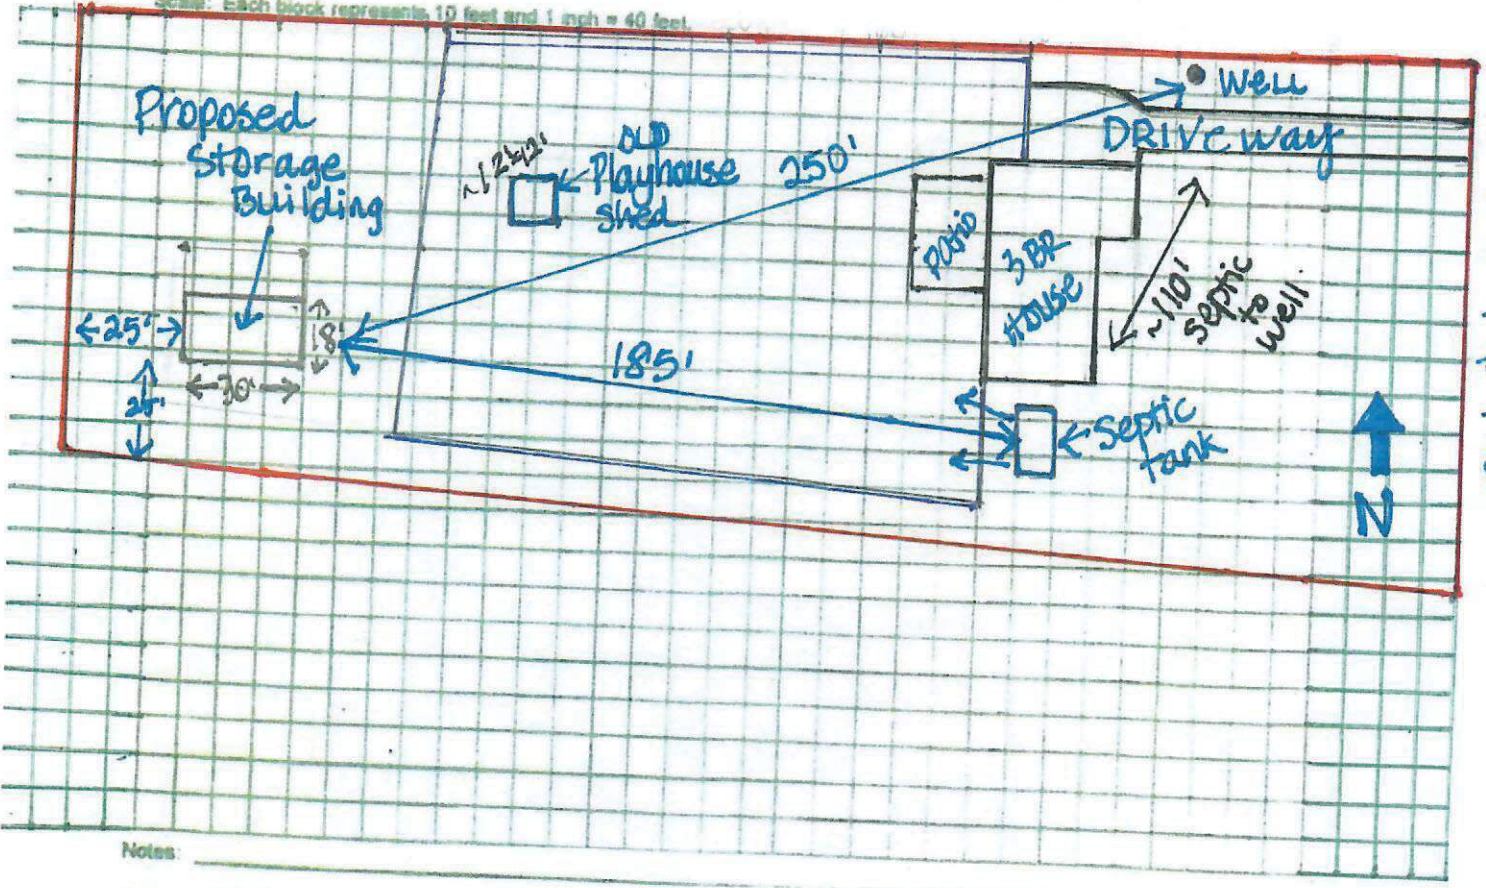 Scale: Each block represents 10 feet and 1 inch = 40 feet.
Well
DRIVEway
Proposed
Storage
Building
~12x12'
OLD
Playhouse
shed
250'
Patio
3 BR
House
~110'
septic
to
well
25'
18'
30'
185'
Septic
tank
N
Notes: